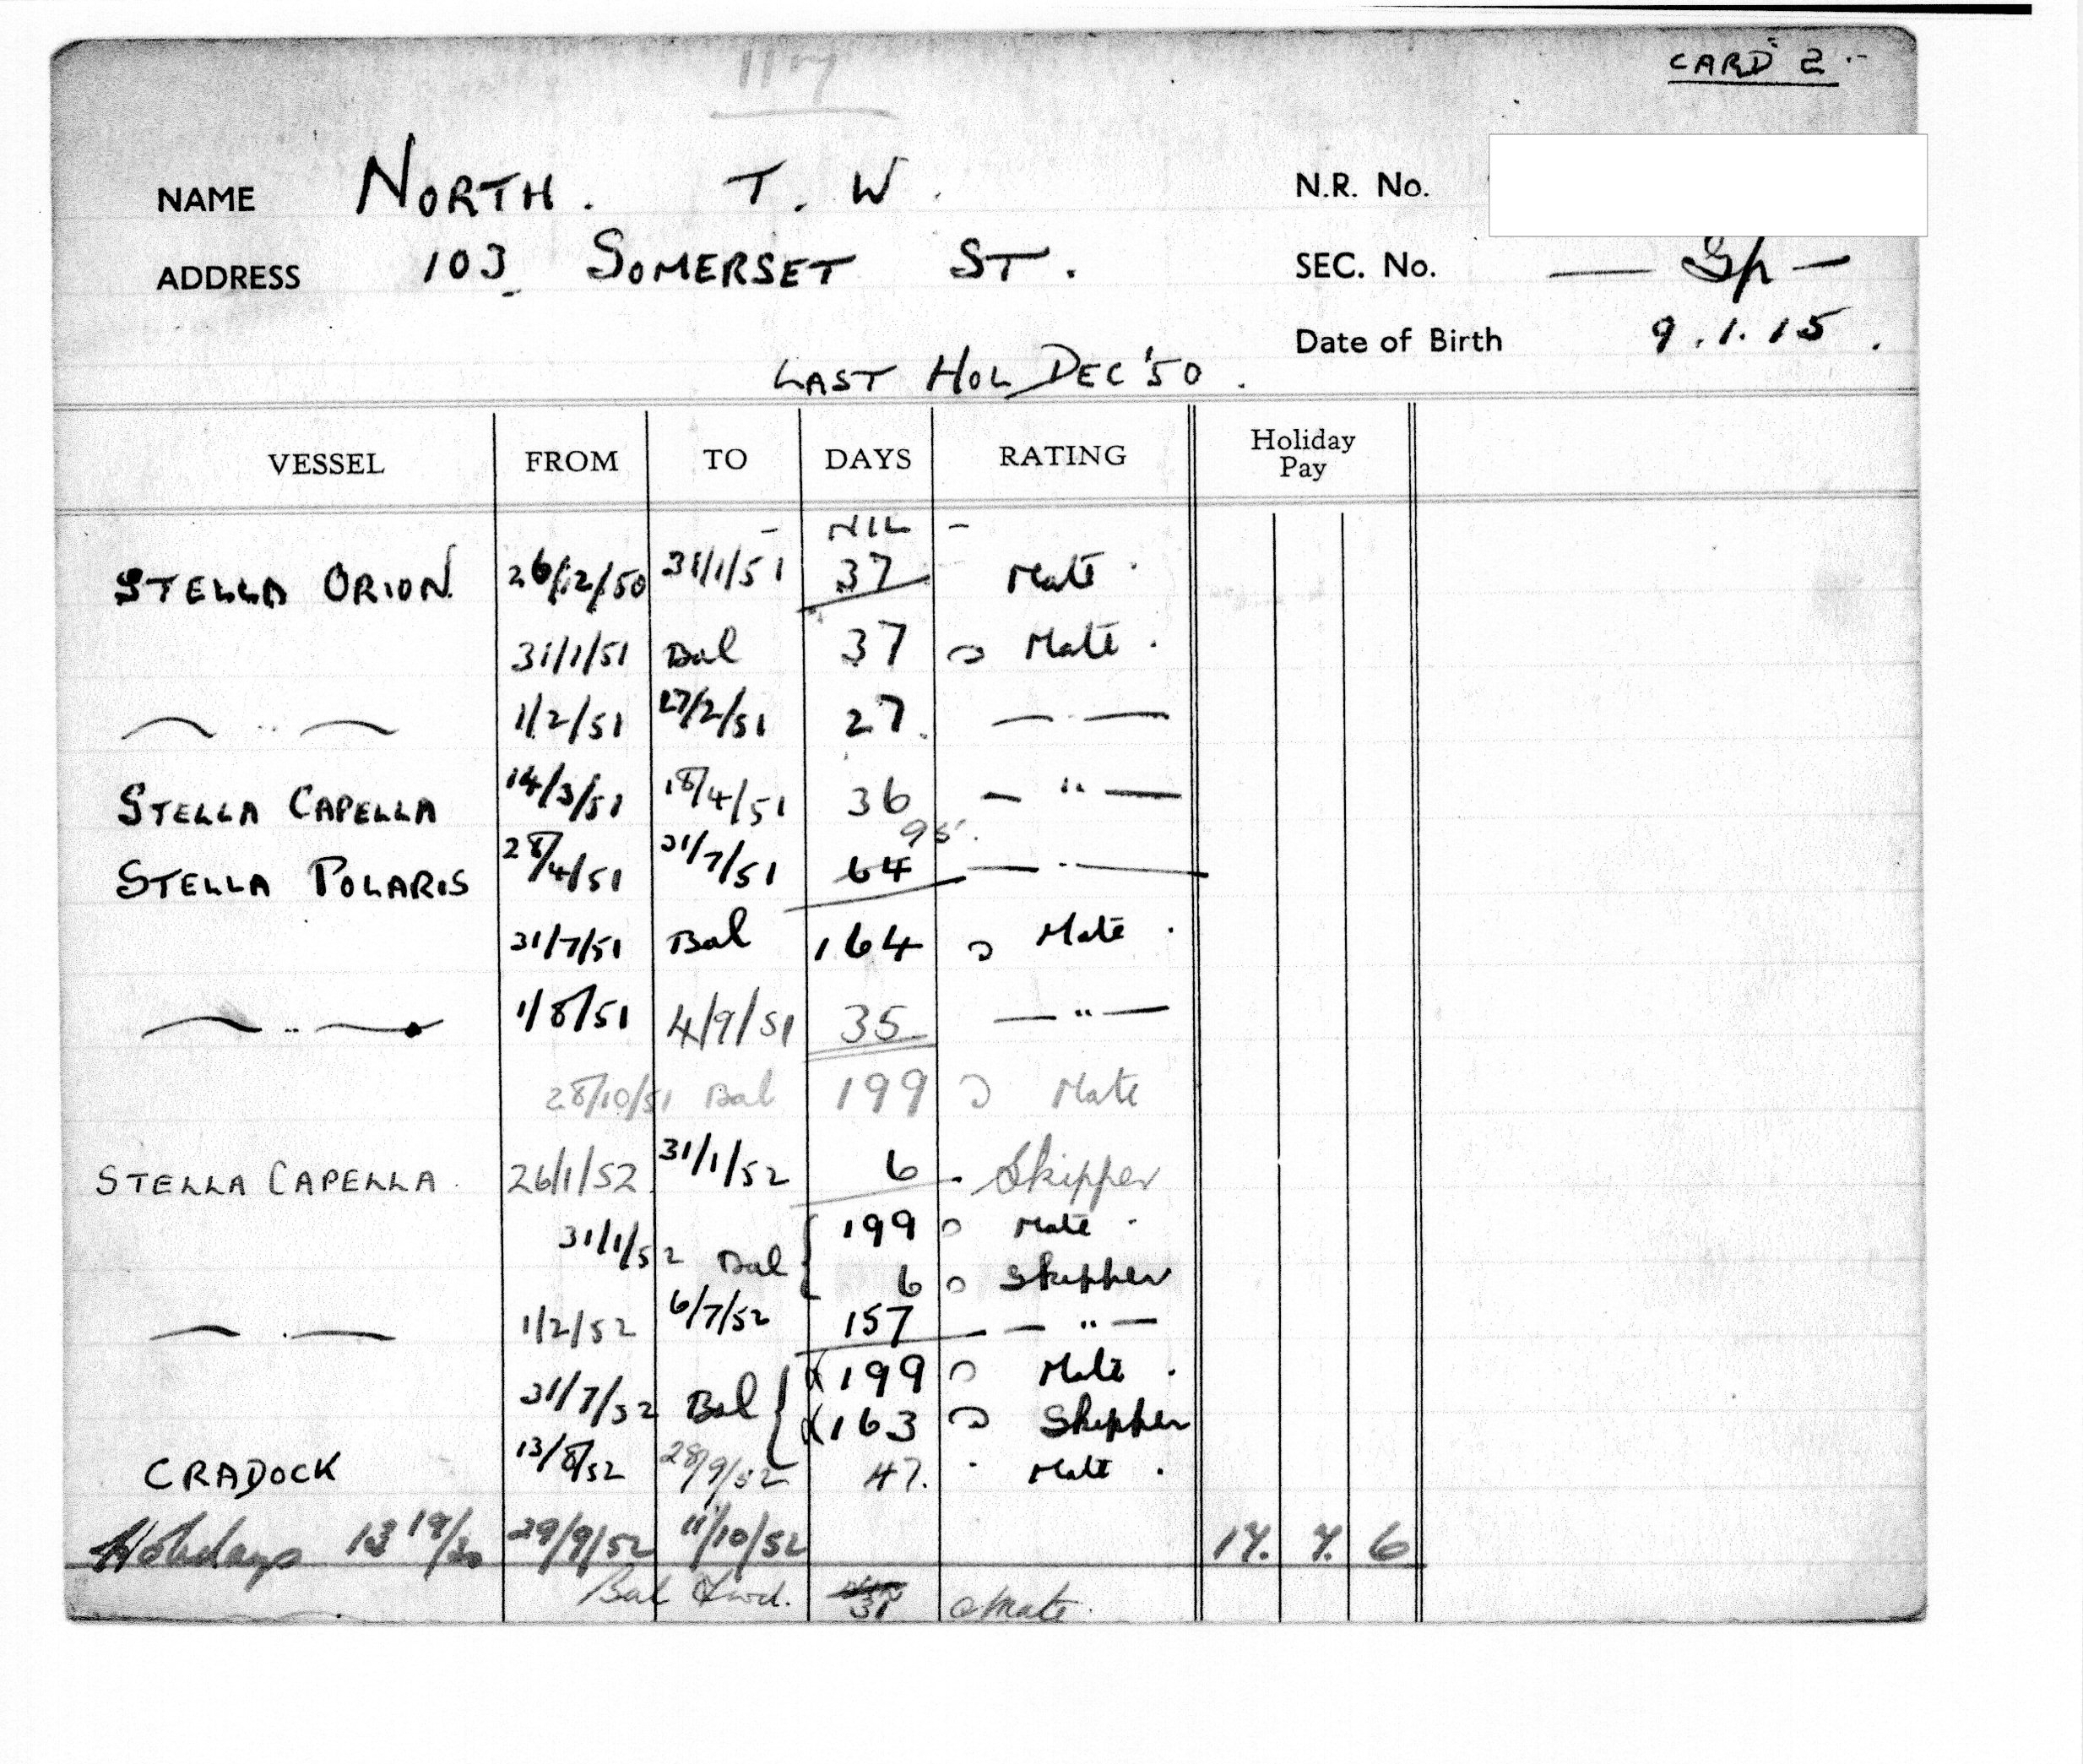 CARD 2
NAME NORTH. T. W. N.R. No.
ADDRESS 103 SOMERSET ST. SEC. No. — —
Date of Birth 9.1.15.
LAST HOL DEC '50.
VESSEL FROM TO DAYS RATING Holiday Pay
- NIL -
STELLA ORION 26/12/50 31/1/51 37 Mate.
31/1/51 Bal 37 Mate.
— .. — 1/2/51 27/2/51 27 — . —
STELLA CAPELLA 14/3/51 18/4/51 36 — " —
95
STELLA POLARIS 28/4/51 31/7/51 64 — . —
31/7/51 Bal 164 Mate.
— .. — 1/8/51 4/9/51 35 — " —
28/10/51 Bal 199 Mate
STELLA CAPELLA. 26/1/52 31/1/52 6 Skipper
31/1/52 Bal { 199 Mate.
6 Skipper
— . — 1/2/52 6/7/52 157 — " —
31/7/52 Bal { 199 Mate.
163 Skipper
CRADOCK 13/8/52 28/9/52 47. Mate.
Holidays 13 19/30 29/9/52 11/10/52 17. 7. 6
Bal fwd. 31 Mate.